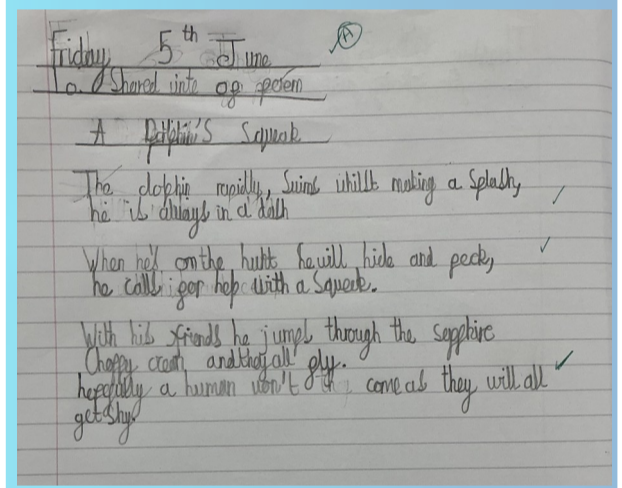 Friday 5th June
To Shared write of poem
A Dolphin's Squeak
The dolphin rapidly, Swims whilst making a Splash,
he is always in a dash
When he's on the hunt he will hide and peek,
he calls for help with a Squeak.
With his friends he jumps through the sepphire
Choppy and they all fly.
hopefully a human won't come as they will all
get shy.